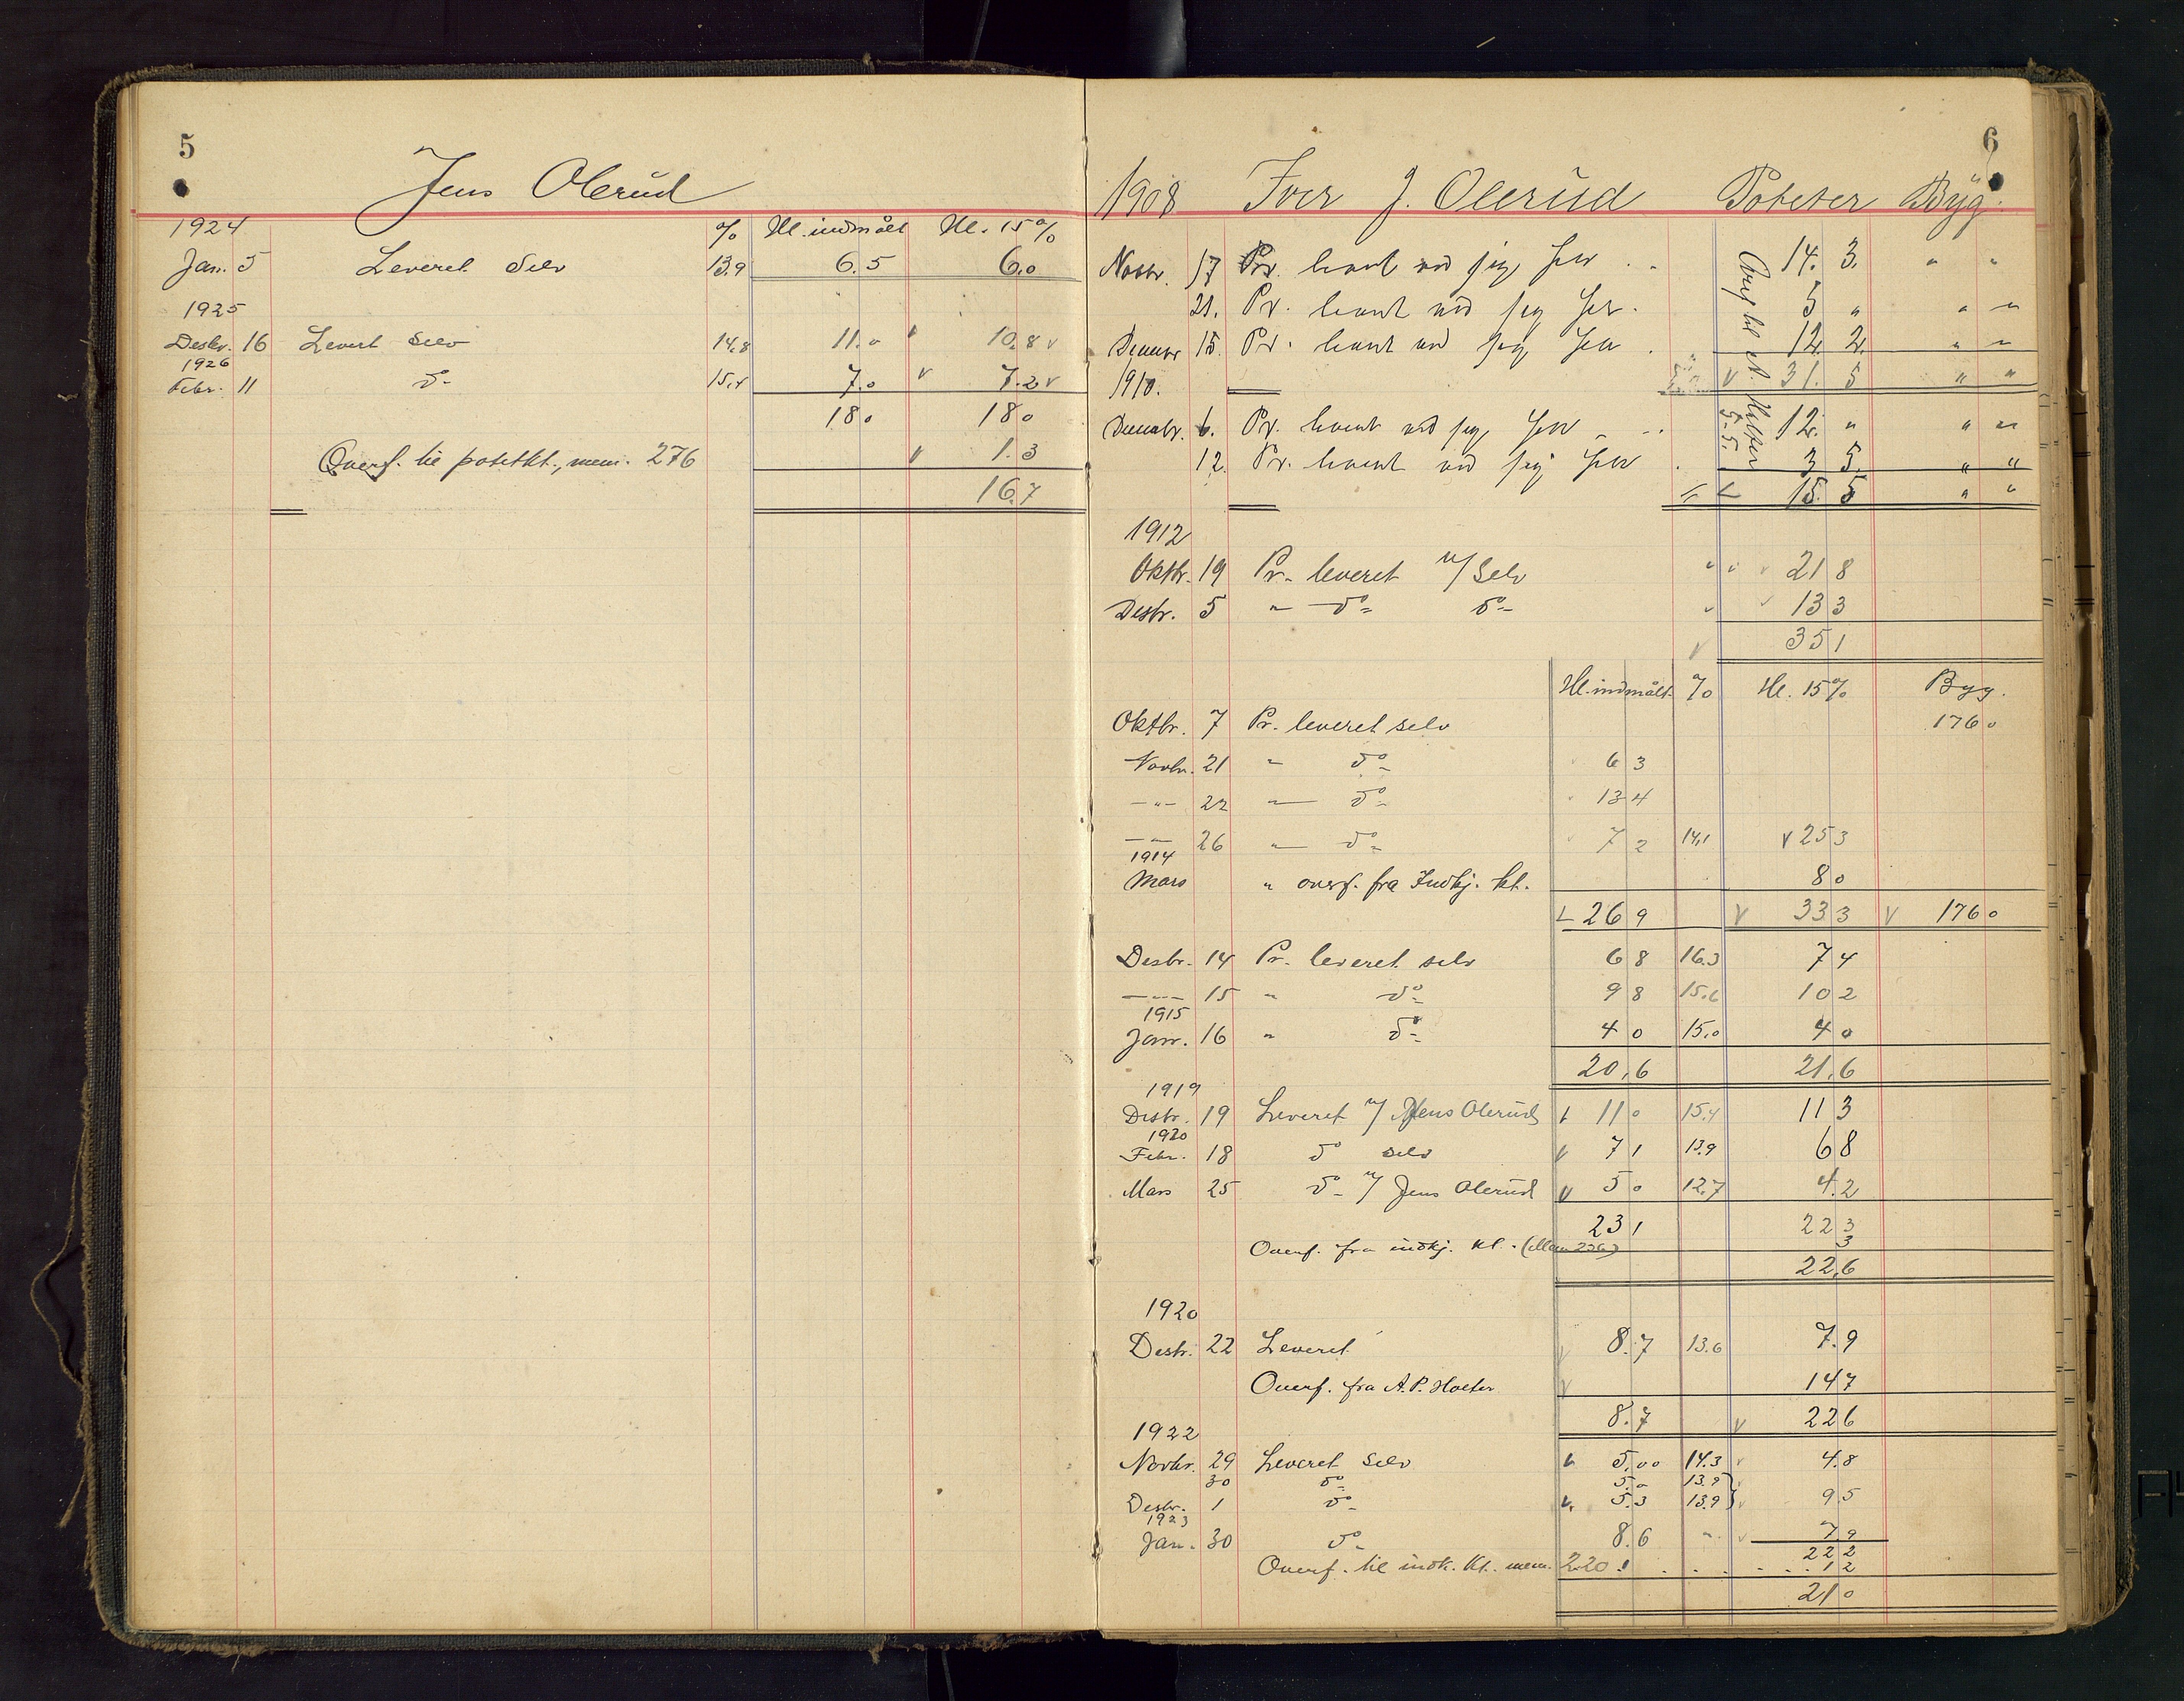 5
Jens Olerud
1924 % Hl. indmålt Hl. 15%
Jan. 5 Leveret Selv 13.9 6.5 6.0
1925
Desbr. 16 Levert Selv 14.8 11.0 v 10.8 v
1926
Febr. 11 do- 15.4 7.0 v 7.2 v
18 0 18 0
Overf. til potetkt., mem. 276 v 1.3
16.7
6
1908 Iver J. Olerud Poteter Byg.
Novbr. 17 Pr. levert ved sig selv 14. 3. " "
21. Pr. levert ved sig selv 5 " " "
Decembr 15. Pr. levert ved sig selv 12. 2. " "
1910. v 31. 5 " "
Decembr. 6. Pr. levert ved sig selv 12. " " "
12. Pr. levert ved sig selv 3 5. " "
15. 5 " "
1912
Oktbr. 19 Pr. leveret v/ Selv 21 8
Desbr. 5 " do- do- 13 3
v 35 1
Hl. indmålt. % Hl. 15% Byg.
Oktbr. 7 Pr. leveret selv 176 0
Novbr. 21 " do- 6 3
-"- 22 " do- 13 4
-"- 26 " do- 7 2 14,1 v 25 3
1914
Mars " overf. fra Indkj. kt. 8 0
26 9 v 33 3 v 176 0
Desbr. 14 Pr. leveret selv 6 8 16.3 7 4
-"- 15 " do- 9 8 15.6 10 2
1915
Janr. 16 " do- 4 0 15.0 4 0
20,6 21,6
1919
Desbr. 19 Leveret v/ Jens Olerud 11 0 15.4 11 3
1920
Febr. 18 do selv v 7 1 13.9 6 8
Mars 25 do- v/ Jens Olerud v 5 0 12.7 4.2
23 1 22 3
Overf. fra indkj. kt. (Mem 236) 3
22,6
1920
Desbr. 22 Leveret v 8.7 13.6 7.9
Overf. fra A. P. Holter v 14 7
8.7 v 22 6
1922
Novbr. 29 Leveret Selv 5.00 14.3 v 4.8
30 do- 5.0 13.9
Desbr. 1 do- v. 5.3 13.9 } v 9 5
1923
Jan. 30 do- 8.6 " v 7 9
22 2
Overf. til indk. kt. mem. 220. . . . . 1 2
21 0